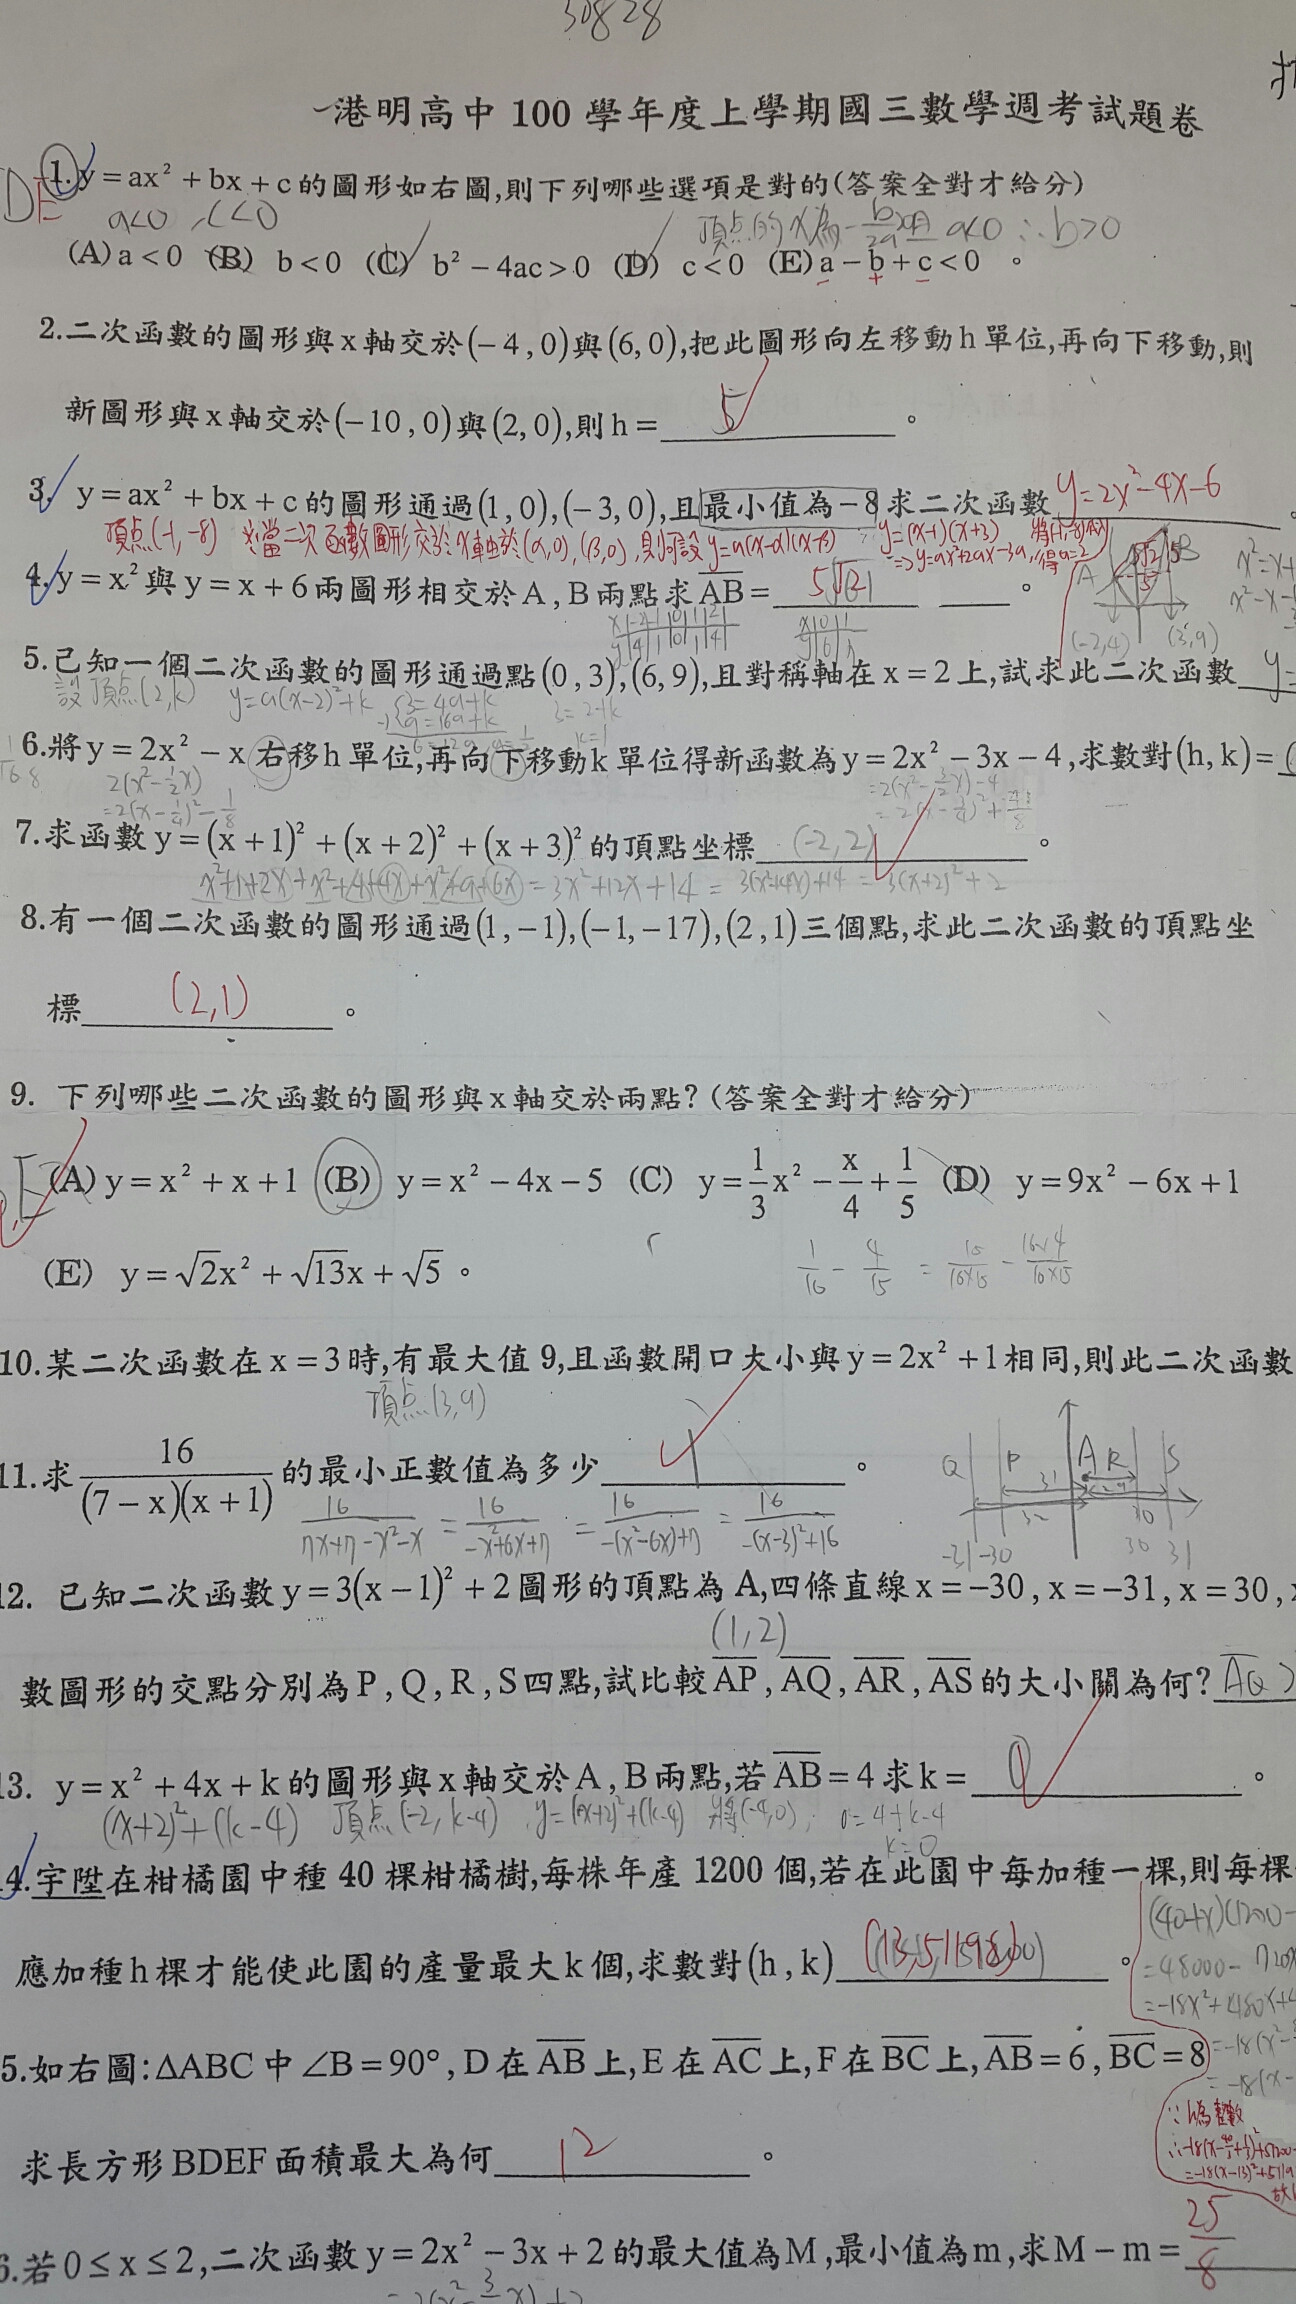 30828
港明高中 100 學年度上學期國三數學週考試題卷
DE
1. y = ax² + bx + c 的圖形如右圖,則下列哪些選項是對的(答案全對才給分)
a<0 , c<0
頂点的x為 -b/2a a<0 ∴b>0
(A) a < 0 (B) b < 0 (C) b² − 4ac > 0 (D) c < 0 (E) a − b + c < 0 。
− + −
2.二次函數的圖形與 x 軸交於(−4,0)與(6,0),把此圖形向左移動 h 單位,再向下移動,則
新圖形與 x 軸交於(−10,0)與(2,0),則 h = 5 。
3. y = ax² + bx + c 的圖形通過(1,0),(−3,0),且最小值為−8求二次函數 y=2x²-4x-6 。
頂点(-1,-8) ※當二次函數圖形交於x軸於(α,0),(β,0),則可設y=a(x-α)(x-β)
y=(x-1)(x+3)
⇒y=ax²+2ax-3a,得a=2
4. y = x² 與 y = x + 6 兩圖形相交於 A , B 兩點求 AB = 5√2 。
A B
(-2,4) (3,9)
5.已知一個二次函數的圖形通過點(0,3),(6,9),且對稱軸在 x = 2 上,試求此二次函數 y=
設頂点(2,k) y=a(x-2)²+k 3=4a+k
9=16a+k
3=2+k
k=1
6.將 y = 2x² − x 右移 h 單位,再向下移動 k 單位得新函數為 y = 2x² − 3x − 4 ,求數對(h,k) = (
2(x²-1/2x)
=2(x-1/4)²-1/8
=2(x²-3/2x)-4
7.求函數 y = (x + 1)² + (x + 2)² + (x + 3)² 的頂點坐標 (-2,2) 。
x²+1+2x+x²+4+4x+x²+9+6x=3x²+12x+14 = 3(x²+4x)+14 = 3(x+2)²+2
8.有一個二次函數的圖形通過(1,−1),(−1,−17),(2,1)三個點,求此二次函數的頂點坐
標 (2,1) 。
9. 下列哪些二次函數的圖形與 x 軸交於兩點? (答案全對才給分)
(A) y = x² + x + 1 (B) y = x² − 4x − 5 (C) y = 1/3 x² − x/4 + 1/5 (D) y = 9x² − 6x + 1
(E) y = √2x² + √13x + √5 。
1/16 - 4/15 = 15/16×15 - 16×4/16×15
10.某二次函數在 x = 3 時,有最大值 9,且函數開口大小與 y = 2x² + 1 相同,則此二次函數
頂点(3,9)
11.求 16/(7 − x)(x + 1) 的最小正數值為多少 1 。
16/7x+7-x²-x = 16/-x²+6x+7 = 16/-(x²-6x)+7 = 16/-(x-3)²+16
Q P A R S
31 29
32
-31 -30 30 31
12. 已知二次函數 y = 3(x − 1)² + 2 圖形的頂點為 A,四條直線 x = −30 , x = −31 , x = 30 ,
(1,2)
數圖形的交點分別為 P , Q , R , S 四點,試比較 AP , AQ , AR , AS 的大小關為何? AQ >
13. y = x² + 4x + k 的圖形與 x 軸交於 A , B 兩點,若 AB = 4 求 k = 0 。
(x+2)²+(k-4) 頂点(-2,k-4) y=(x+2)²+(k-4) 將(-4,0), 0=4+k-4
k=0
4.宇陞在柑橘園中種 40 棵柑橘樹,每株年產 1200 個,若在此園中每加種一棵,則每棵
(40+x)(1200-
應加種 h 棵才能使此園的產量最大 k 個,求數對(h,k) 。
=48000-720x
=-18x²+480x+4
=-18(x²-
=-18(x-
5.如右圖:ΔABC 中 ∠B = 90° , D 在 AB 上, E 在 AC 上, F 在 BC 上, AB = 6 , BC = 8
∵h為整數
=-18(x-13)²+5119
求長方形 BDEF 面積最大為何 12 。
6.若 0 ≤ x ≤ 2 ,二次函數 y = 2x² − 3x + 2 的最大值為 M ,最小值為 m ,求 M − m = 25/8